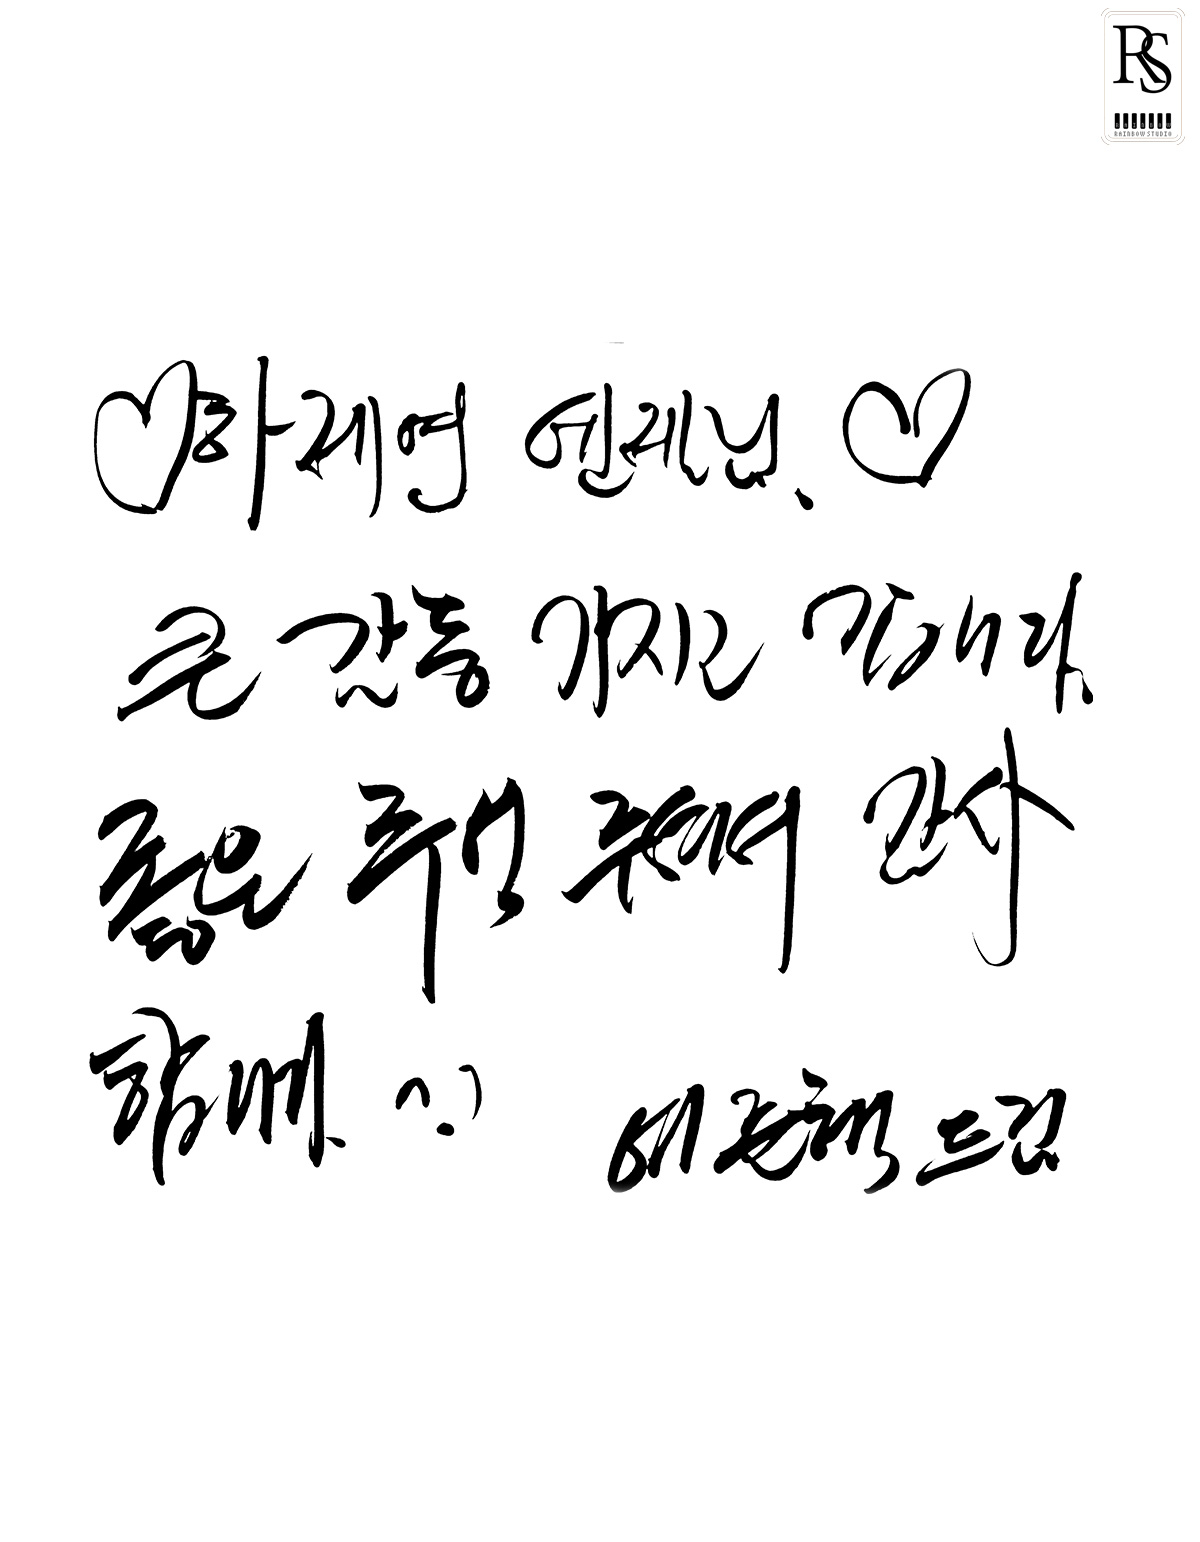 RS
RAINBOW STUDIO
♡하제영 엔젤님. ♡
큰 감동 가지고 갑니다.
좋은 추억 주셔서 감사
합니다. ^.^)
드림